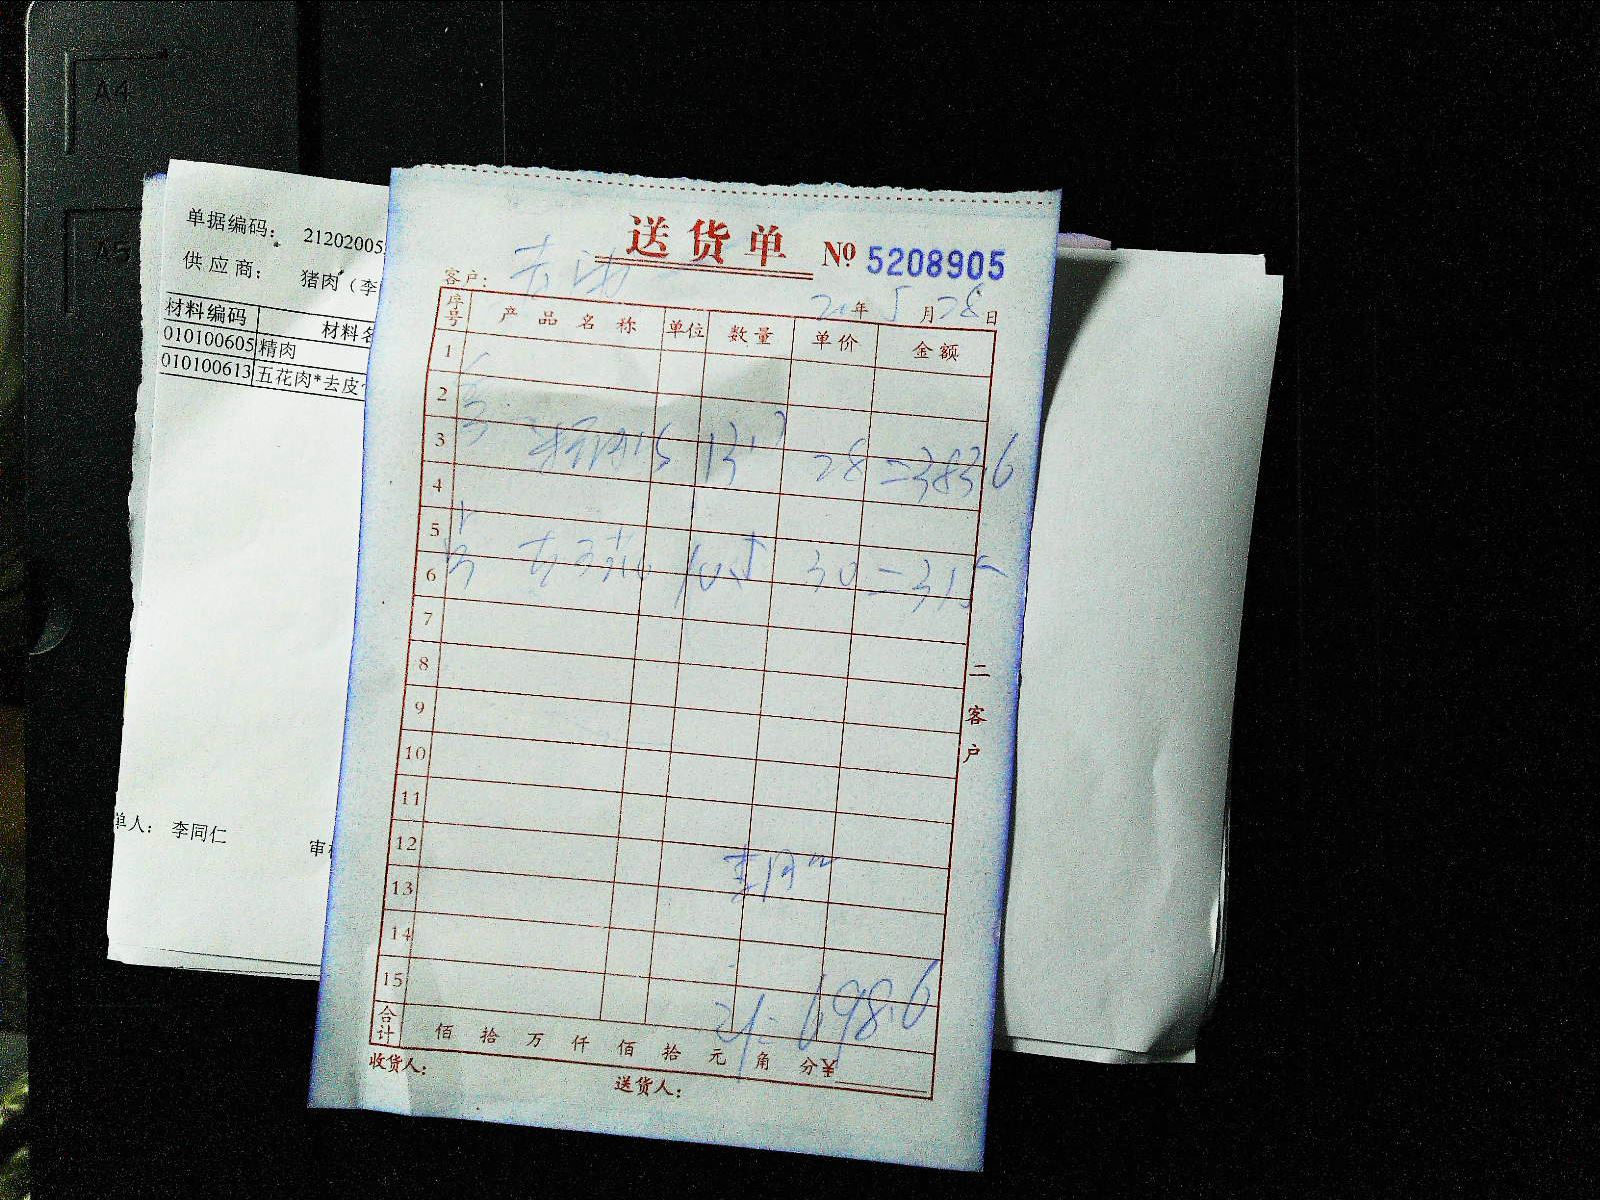 A4
A5
单据编码: 21202005
供应商: 猪肉（李
材料编码 材料名
010100605 精肉
010100613 五花肉*去皮
单人: 李同仁
审
送货单 № 5208905
客户:
20年5月28日
序号 产品名称 单位 数量 单价 金额
1
2
3 13.7 28=383.6
4
5
6 10.5 30=315
7
8
9
10
11
12
13
14
15
698.6
合计 佰 拾 万 仟 佰 拾 元 角 分 ¥
收货人:
送货人:
二客户